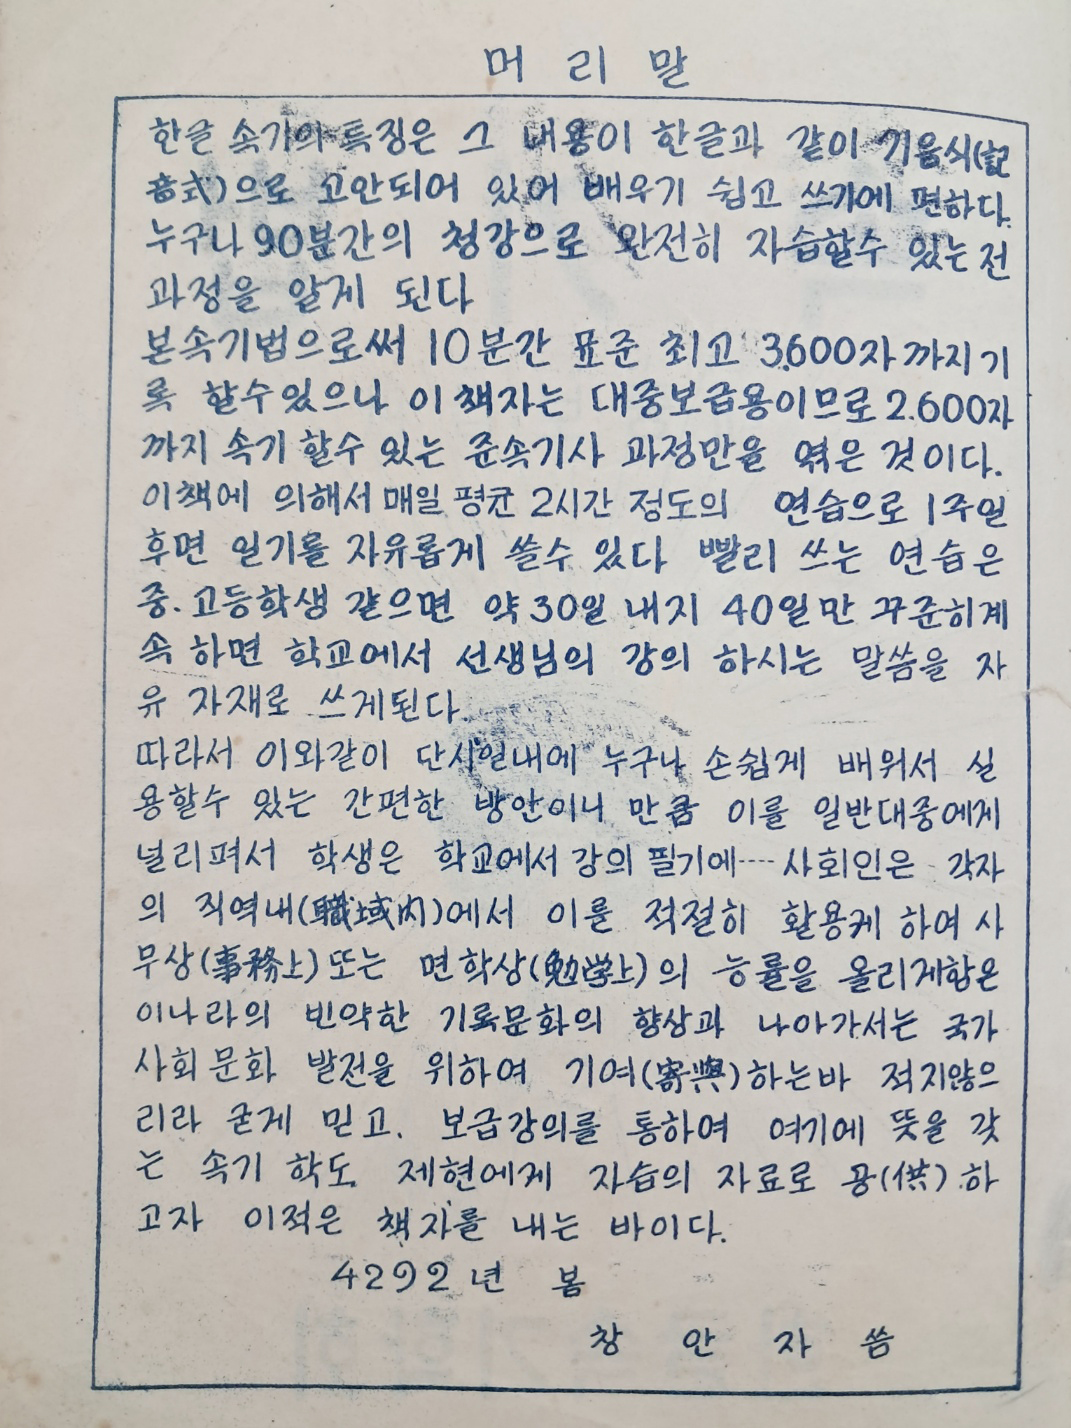 머리말
한글 속기의 특징은 그 내용이 한글과 같이 기음식(記
音式)으로 고안되어 있어 배우기 쉽고 쓰기에 편하다.
누구나 90분간의 청강으로 완전히 자습할수 있는 전
과정을 알게 된다
본속기법으로써 10분간 표준 최고 3.600자 까지 기
록 할수있으나 이 책자는 대중보급용이므로 2.600자
까지 속기 할수 있는 준속기사 과정만을 엮은 것이다.
이책에 의해서 매일 평균 2시간 정도의 연습으로 1주일
후면 일기를 자유롭게 쓸수 있다 빨리 쓰는 연습은
중.고등학생 같으면 약 30일 내지 40일만 꾸준히계
속 하면 학교에서 선생님의 강의 하시는 말씀을 자
유 자재로 쓰게된다.
따라서 이와같이 단시일내에 누구나 손쉽게 배워서 실
용할수 있는 간편한 방안이니 만큼 이를 일반대중에게
널리펴서 학생은 학교에서 강의 필기에---- 사회인은 각자
의 직역내(職域内)에서 이를 적절히 활용케 하여 사
무상(事務上) 또는 면학상(勉学上)의 능률을 올리게함은
이나라의 빈약한 기록문화의 향상과 나아가서는 국가
사회문화 발전을 위하여 기여(寄與)하는바 적지않으
리라 굳게 믿고. 보급강의를 통하여 여기에 뜻을 갖
는 속기 학도 제현에게 자습의 자료로 공(供)하
고자 이적은 책자를 내는 바이다.
4292년 봄
창안자 씀